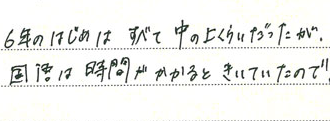 6年のはじめは すべて 中の上くらいだったが.
国語は時間がかかると きいていたので"